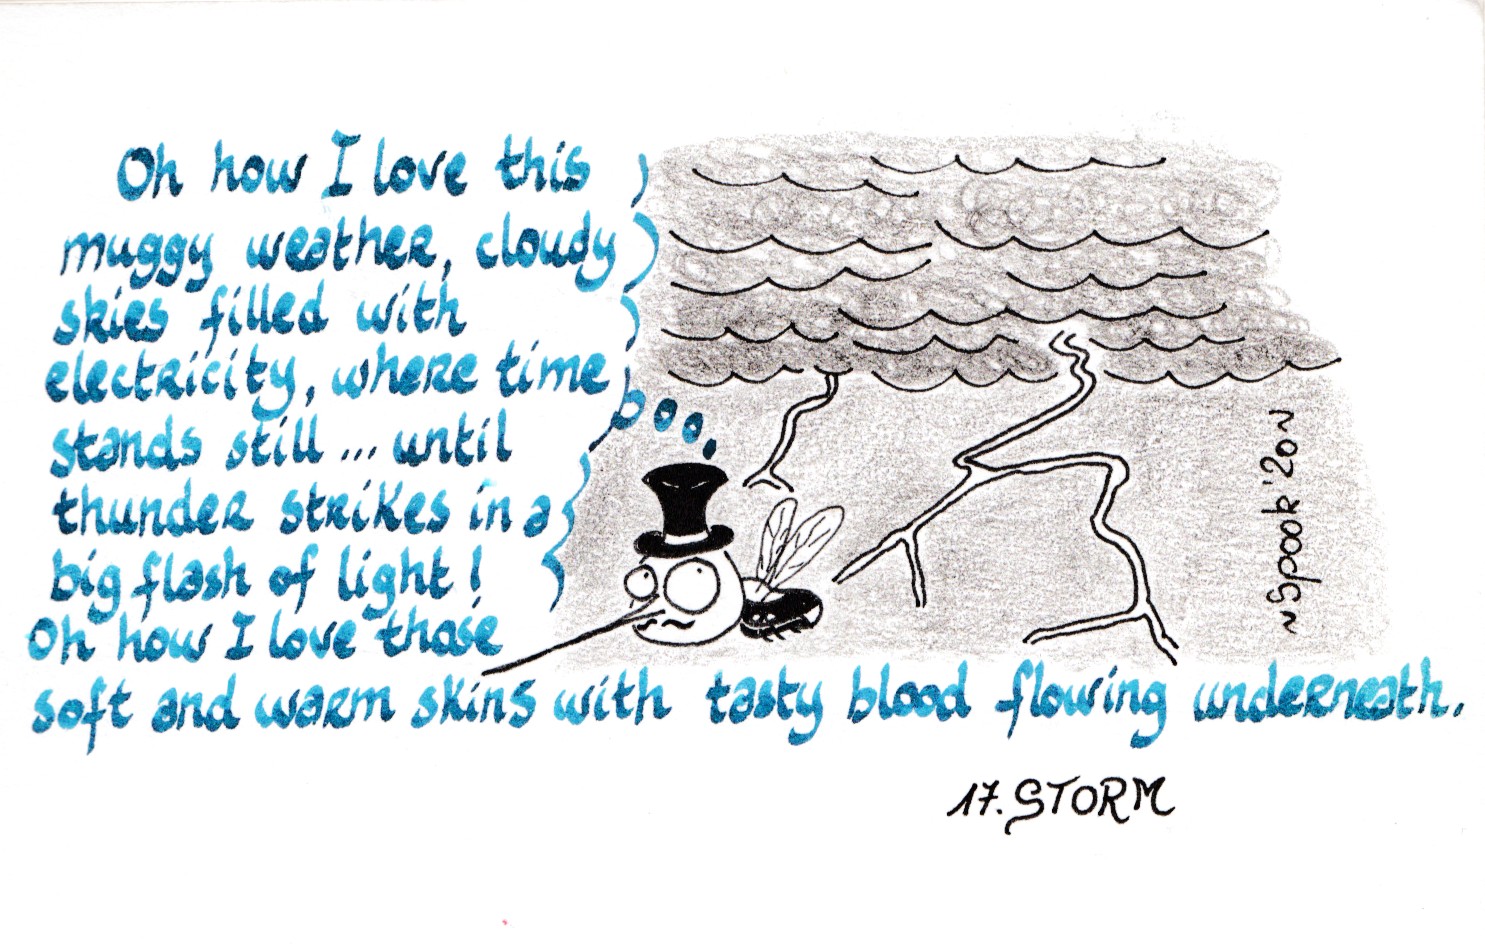 Oh how I love this
muggy weather, cloudy
skies filled with
electricity, where time
stands still ... until
thunder strikes in a
big flash of light!
Oh how I love those
soft and warm skins with tasty blood flowing underneath.
~Spook '20~
17. STORM